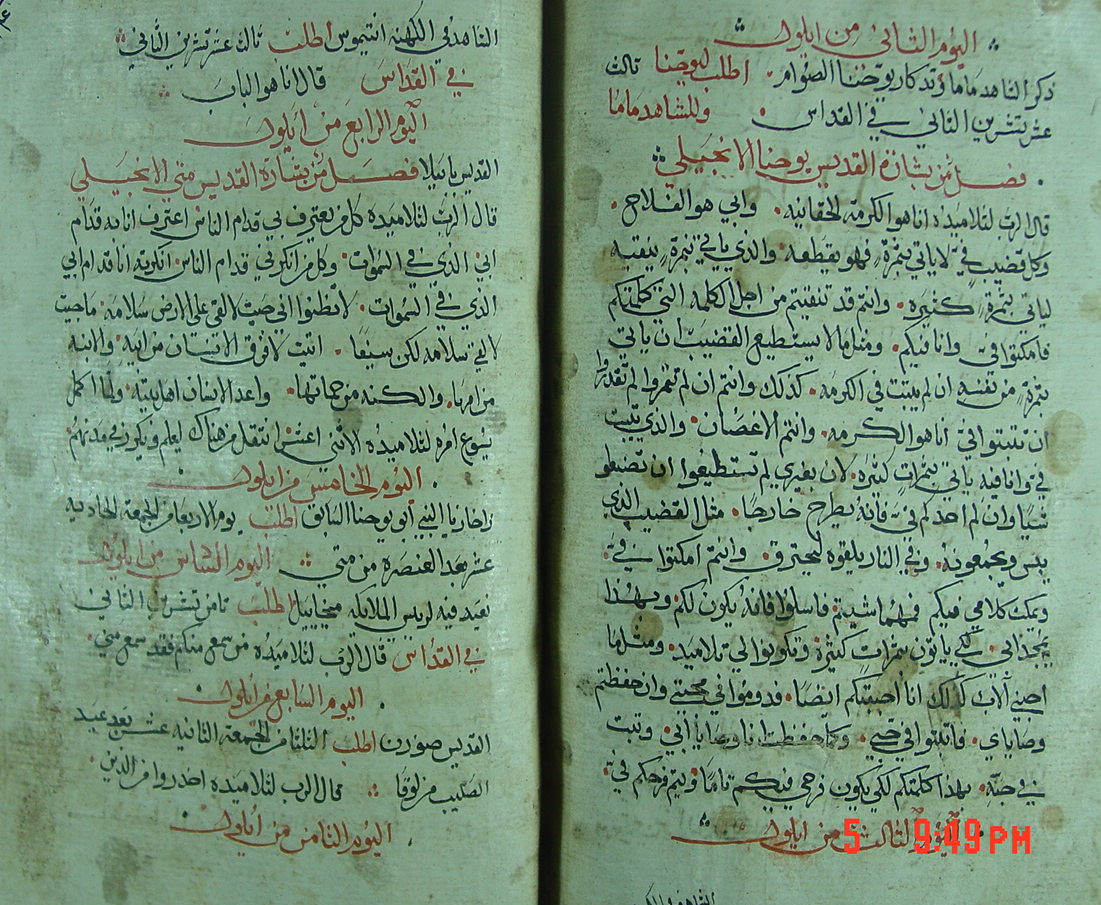 اليوم الثاني من ايلول
ذكر الشاهد ماما وتدكار يوحنا الصوام اطلب ليوحنا تالت
عشر تشرين التاني في القداس وللشاهد ماما
فصل من بشارة القديس يوحنا الانجيلي
قال الرب لتلاميده انا هو الكرمه الحقانيه وابي هو الفلاح
وكل قضيب في لا ياتي بتمرة فهو يقطعه والذي ياتي بتمرة ينقيه
لياتي بتمرة كتيره وانتم قد تنقيتم من اجل الكلمه التي كلمتكم
فامكتوا في وانا فيكم ومتلما لا يستطيع القضيب ان ياتي
بتمرة من نفسه ان لم يتبت في الكرمه كذلك وانتم ان لم تتمروا لم تقدروا
ان تتبتوا في انا هو الكرمه وانتم الاغصان والذي يتبت
في وانا فيه ياتي بتمرات كتيره لان بغيري لم تستطيعوا ان تصنعوا
شيا وان لم احدكم في فانه يطرح خارجا متل القضيب الذي
ييبس ويجمعونه وفي النار يلقوه ليحترق وانتم امكتوا في
ويمكت كلامي فيكم فمهما شيتم فاسلوا فانه يكون لكم وبهدا
يتمجد ابي لكي ياتون بتمرات كتيرة وتكونوا لي تلاميد ومتلما
احبني الاب كذلك انا احببتكم ايضا فدوموا في محبتي وان حفظتم
وصاياي فاتبتوا في حبي وكما حفظت انا وصايا ابي وتبت
في حبه بهدا كلمتكم لكي يكون فرحي فيكم تاما ويتم فرحكم في
اليوم التالت من ايلول
5 9:49 PM
الشاهد في الكهنه انتيموس اطلب تالت عشر تشرين التاني
في القداس قال انا هو الباب
اليوم الرابع من ايلول
القديس بابيلا فصل من بشارة القديس متي الانجيلي
قال الرب لتلاميده كل من يعترف بي قدام الناس اعترف انا به قدام
ابي الذي في السموات وكل من انكرني قدام الناس انكرته انا قدام ابي
الذي في السموات لا تظنوا اني جيت لالقي على الارض سلامه ما جيت
لالقي سلامه لكن سيفا اتيت لافرق الانسان من ابيه والابنه
من امها والكنه من حماتها واعدا الانسان اهل بيته ولما اكمل
يسوع امره لتلاميده الاتني عشر انتقل من هناك ليعلم ويكرز في مدنهم
اليوم الخامس من ايلول
زاخاريا النبي ابو يوحنا السابق اطلب يوم الاربعا من الجمعة الحاديه
عشر بعد العنصره من متي اليوم السادس من ايلول
نعيد فيه لريس الملايكه ميخاييل اطلب تامن تشرين التاني
في القداس قال الرب لتلاميده من سمع منكم فقد سمع مني
اليوم السابع من ايلول
القديس صوزن اطلب التلتا من الجمعة التانيه عشر بعد عيد
الصليب من لوقا قال الرب لتلاميده احدروا من الذين
اليوم التامن من ايلول